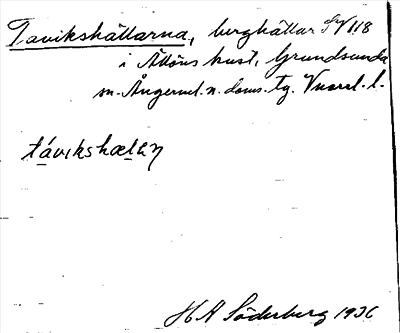 Tavikshällarna, berghällar SV 118
i Ällöns kust, Grundsunda
sn. Ångerml. n. doms. tg.
távikshælaɳ
HA Söderberg 1936